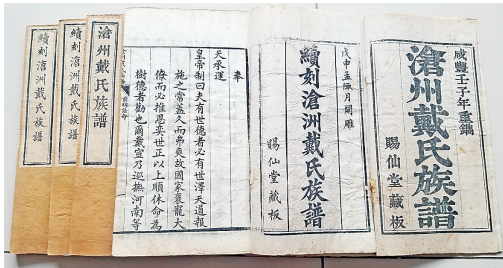 咸豐壬子年重鐫
滄州戴氏族譜
賜仙堂藏板
戊申孟秋月開雕
續刻滄洲戴氏族譜
賜仙堂藏板
奉
天承運
皇帝制曰夫有世德者必有世澤天道報
施之常益久而弗爽故國家褒寵大
僚而必推恩奕世正以上順休命為
樹德者勸也爾戴宣乃巡撫河南等
滄州戴氏族譜
續刻滄洲戴氏族譜
續刻滄洲戴氏族譜